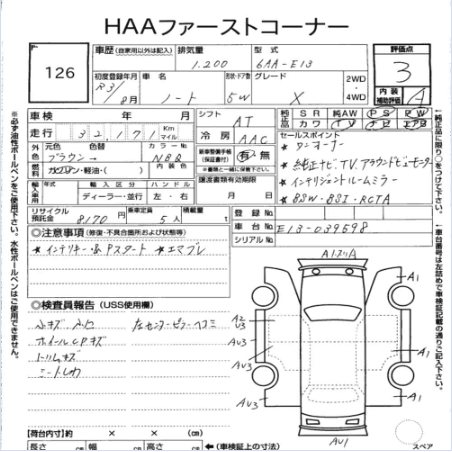 HAAファーストコーナー
126
車歴 (自家用以外は記入) 排気量 型式
1.200 6AA-E13
評価点
3
初度登録年月 車名 形状・ドア数 グレード
R3/8月 ノート 5W X
2WD・4WD
内装補助評価 A
車検 年 月
シフト AT
純正品 SR 純AW PS PW
カワ TV エアB
走行 32,171 Km マイル
冷房 AAC
セールスポイント
★ワンオーナー
外色 元色 色替 カラーNo.
ブラウン→
ガソリン・軽油・( ) 内装色
新車整備手帳(保証書付) 有・無
※書類と一緒に保管下さい。
★純正ナビ TV.アラウンドビューモニター
★インテリジェントルームミラー
★BSW・BSI・RCTA
輸入車用 輸入区分 ハンドル
ディーラー・並行 左・右
譲渡書類有効期限
月 日
リサイクル預託金 8170円 乗車定員 5人 積載量 t
登録No.
車台No. E13-039598
シリアルNo.
◎注意事項 (修復・不具合箇所および状態等)
★インテリキー・Pスタート ★エマブレ
◎検査員報告 (USS使用欄)
左センターピラーヘコミ
ホイールCPキズ
トリムキズ
シートしわ
A1
A1
A2
U3
AU3
AU3
A1
A1
AU1
スペア
【荷台内寸】約 × × (cm)
長さ cm 幅 cm 高さ cm (車検証上の寸法)
※必ず油性ボールペンをご使用下さい。水性ボールペンは使用できません。
↑純正品に限り○をつけて下さい。
↑車台番号は左詰めで車検証記載の通りご記入下さい。